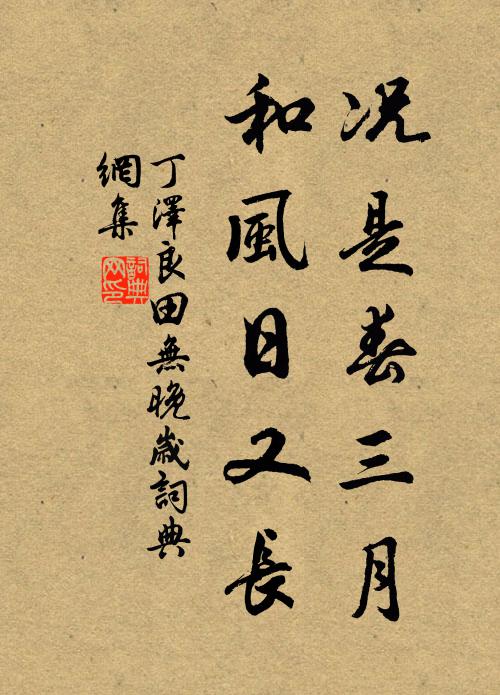 况是春三月
和風日又長
丁澤良田無晚歲詞典
網集
詞典
网印